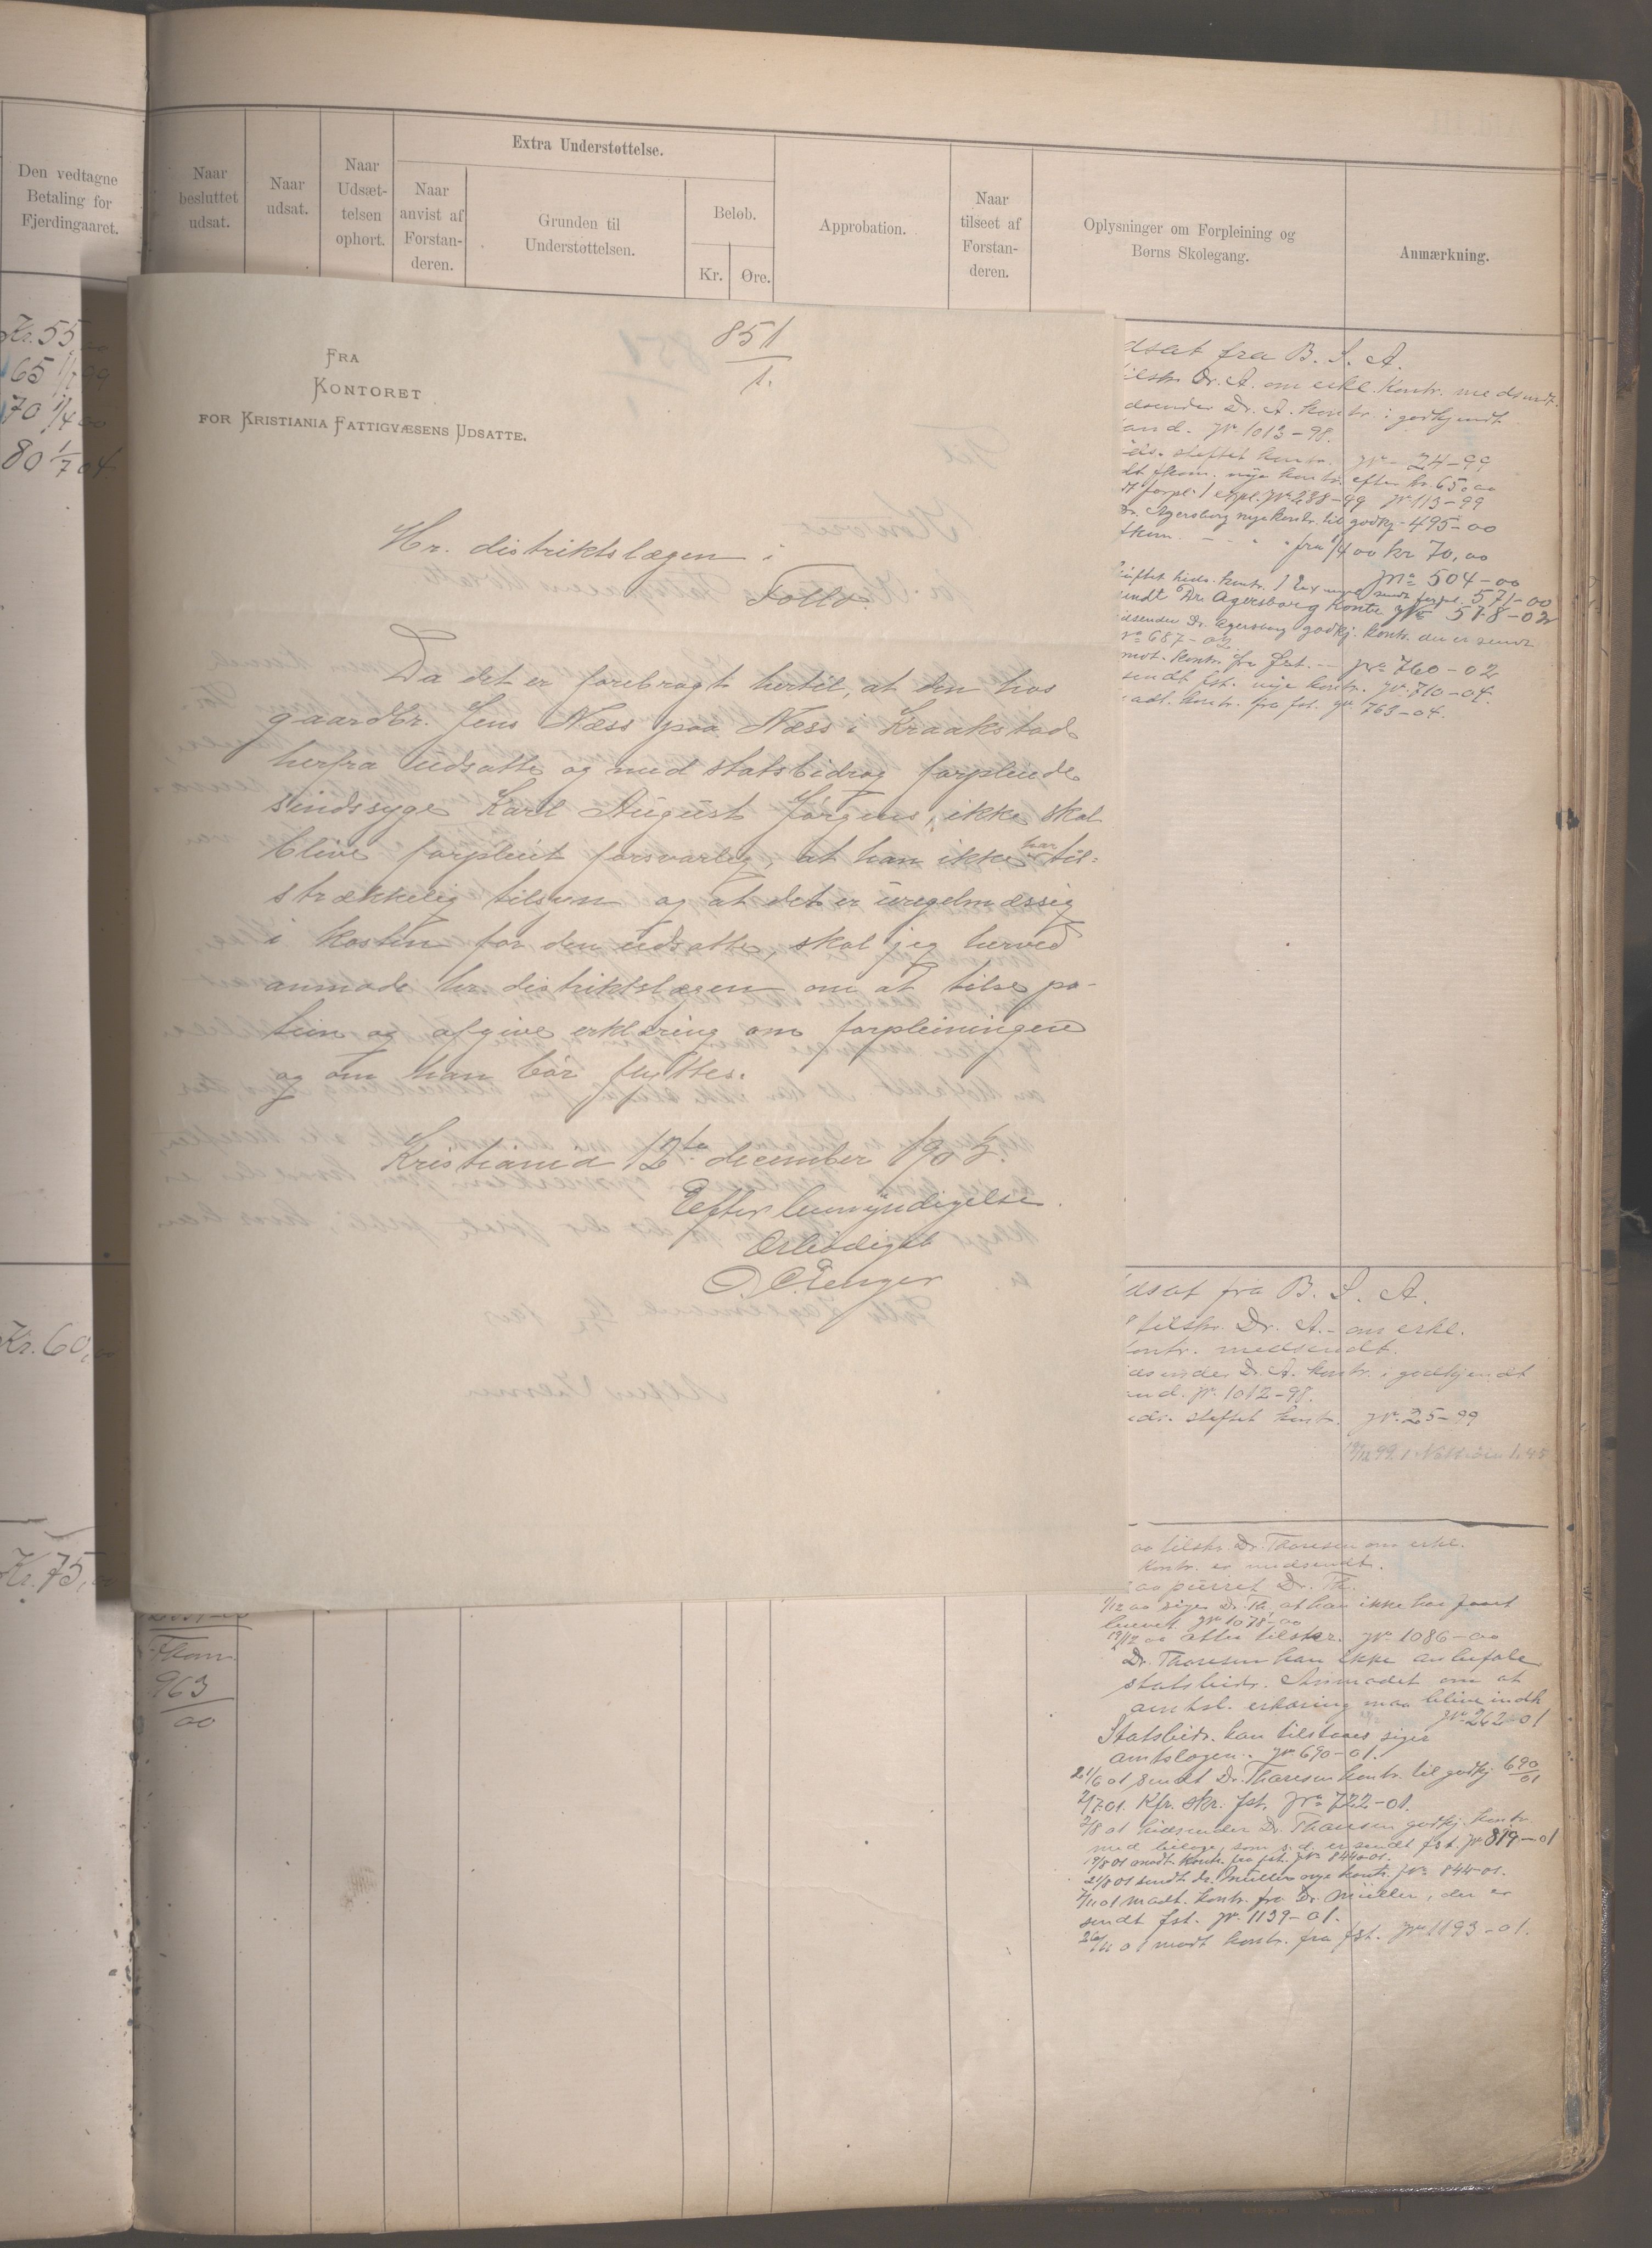 Den vedtagne
Betaling for
Fjerdingaaret.
Kr. 55
65 1/7 99
70 1/4 00
80 1/7 04
Kr. 60,
Kr. 75,
Naar
besluttet
udsat.
Naar
udsat.
Naar
Udsæt-
telsen
ophørt.
Extra Understøttelse.
Naar
anvist af
Forstan-
deren.
Grunden til
Understøttelsen.
Beløb.
Kr.
Øre.
Approbation.
Naar
tilseet af
Forstan-
deren.
Oplysninger om Forpleining og
Børns Skolegang.
Anmærkning.
851
1.
FRA
KONTORET
FOR KRISTIANIA FATTIGVÆSENS UDSATTE.
Hr. distriktslægen i
Follo.
Da det er forebragt hertil, at den hos
gaardbr. Jens Næss paa Næss i Kraakstad
herfra udsatte og med statsbidrag forpleiede
sindssyge Karl August Jørgens, ikke skal
blive forpleiet forsvarlig, at han ikke har til-
strækkelig tilsyn og at det er uregelmæssig
i kosten for den udsatte, skal jeg herved
anmode hr. distriktslægen om at tilse pa-
tien og afgive erklæring om forpleiningen
og om han bør flyttes.
Kristiania 12te december 190
Efter bemyndigelse
Ærbødigst
dsat fra B. S. A.
tilskr. Dr. A. om erkl. Kontr. medsendt.
dsender Dr. A. kontr. i godkjendt
and. Jr. 1013-98.
heftet kontr. Jr. 24-99
fkom. nye kontr. efter kr. 65,00
forpl. Jr. 238-99 Jr. 113-99
Dr. Agersborg nye kontr. til godkj. 495-00
fkom. fra 1/4 00 kr 70,00
Jr. 504-00
571-00
sendt Dr. Agersborg kontr. Jr. 578-02
dsender Dr. Agersborg godkj. kontr. der er sendt
Jr. 687-02
mot. kontr. fra fst. - Jr. 760-02
sendt fst. nye kontr. Jr. 710-04.
adt. kontr. fra fst. Jr. 763-04.
dsat fra B. S. A.
tilskr. Dr. A. om erkl.
kontr. medsendt.
dsender Dr. A. kontr. i godkjendt
and. Jr. 1012-98.
heftet kontr. Jr. 25-99
oo tilskr. Dr. Thoresen om erkl.
kontr. er medsendt.
oo purret Dr. Th.
1/12 00 siger Dr. Th. at han ikke har faaet
brevet Jr. 1078-00
19/12 00 atter tilskr. Jr. 1086-00
Dr. Thoresen kan ikke anbefale
statsbidr. Anmodet om at
amtsl. erklæring maa blive indh
Jr. 262-01
Statsbidr. kan tilstaaes siger
amtslægen. Jr. 690-01.
21/6 01 sendt Dr. Thoresen kontr. til godkj. 690/01
2/7 01. Kfr. skr. fst. Jr. 722-01.
2/8 01 hidsender Dr. Thoresen godkj. kontr.
med bilage som s.d. er sendt fst. Jr. 819-01
19/8 01 modt. kontr. fra fst. Jr. 844-01.
21/8 01 sendt dr. Müller nye kontr. Jr. 844-01.
7/11 01 modt. kontr. fra Dr. Müller, der er
sendt fst. Jr. 1139-01.
26/11 01 modt kontr. fra fst. Jr. 1193-01.
Fkom.
963
00